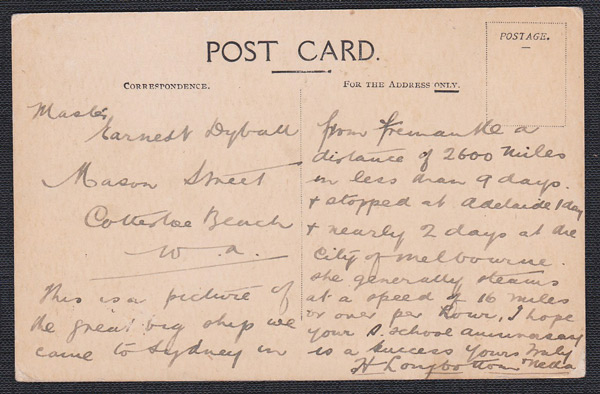 POST CARD.
POSTAGE.
CORRESPONDENCE.
FOR THE ADDRESS ONLY.
Master
Earnest Dyball
Mason Street
Cottesloe Beach
W. A.
This is a picture of
the great big ship we
came to Sydney in
from Fremantle a
distance of 2600 miles
in less than 9 days.
+ stopped at Adelaide 1 day
+ nearly 2 days at the
City of Melbourne.
She generally steams
at a speed of 16 miles
or over per hour, I hope
your S. School anniversary
is a success Yours truly
H Longbottom + Nella